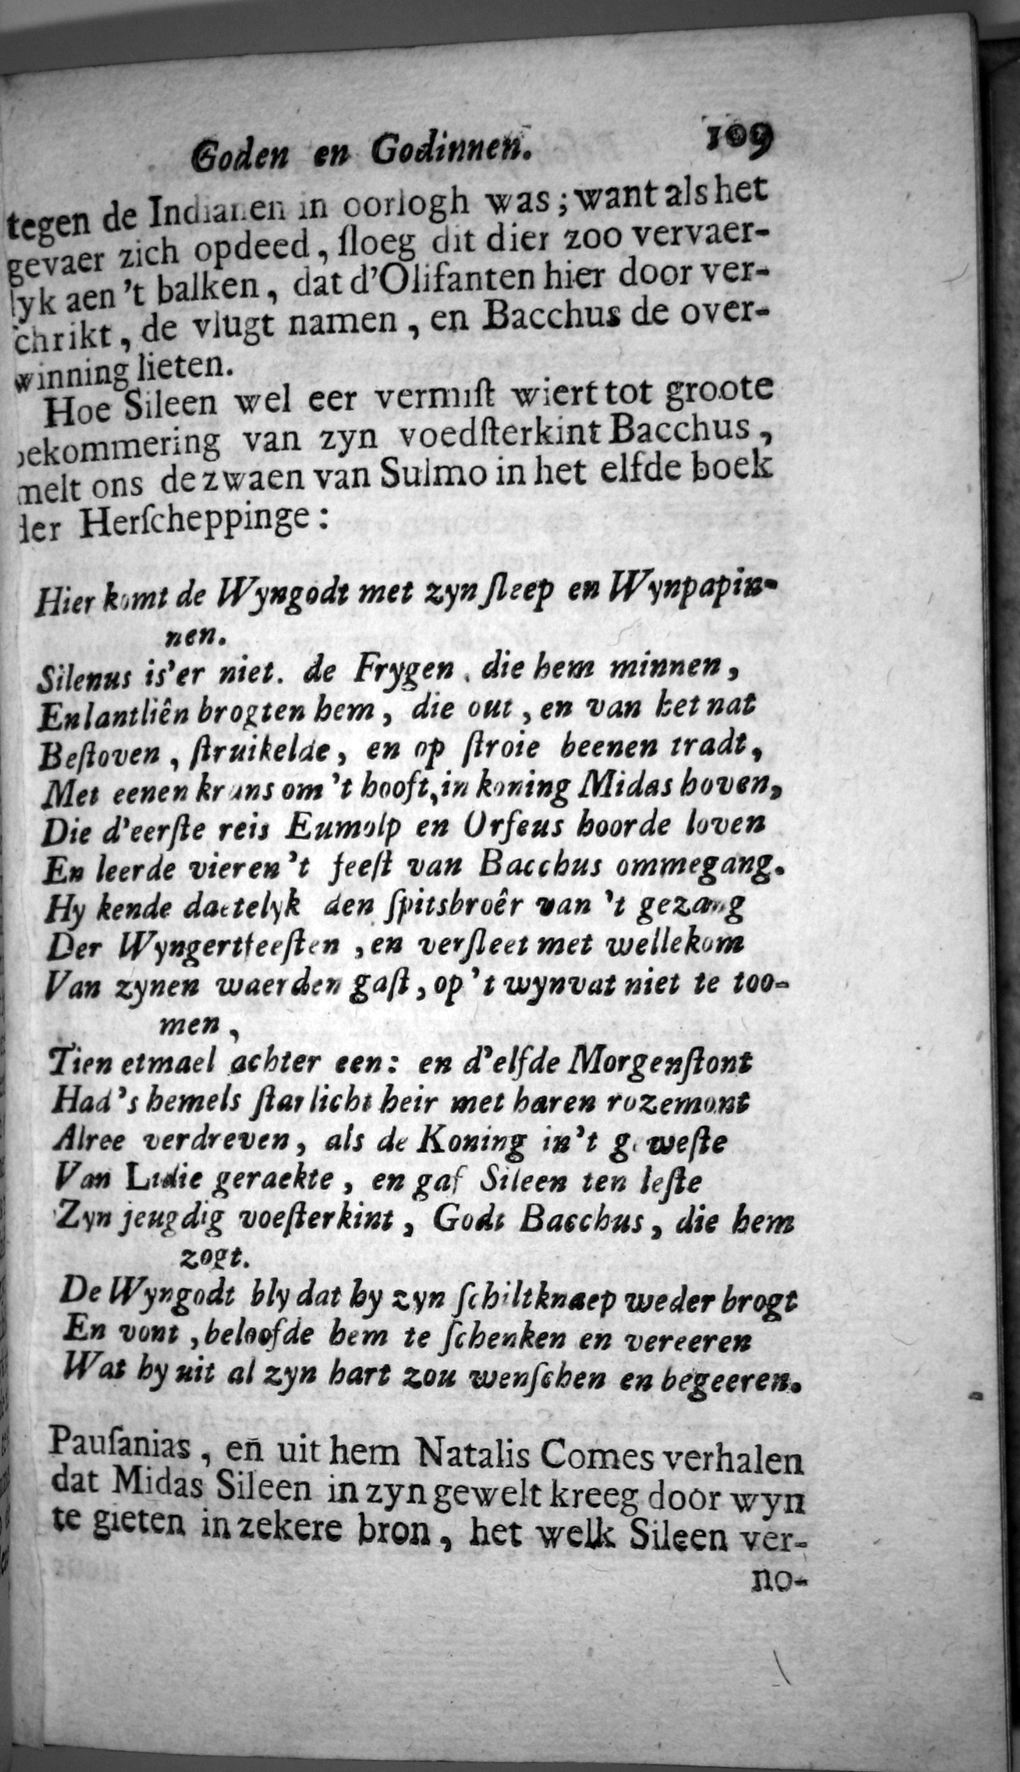 Goden en Godinnen. 109
tegen de Indianen in oorlogh was; want als het
gevaer zich opdeed, ſloeg dit dier zoo vervaer-
lyk aen 't balken, dat d'Olifanten hier door ver-
ſchrikt, de vlugt namen, en Bacchus de over-
winning lieten.
Hoe Sileen wel eer vermiſt wiert tot groote
bekommering van zyn voedſterkint Bacchus,
melt ons de zwaen van Sulmo in het elfde boek
der Herſcheppinge:
Hier komt de Wyngodt met zyn ſleep en Wynpapin-
nen.
Silenus is'er niet. de Frygen, die hem minnen,
En lantliên brogten hem, die out, en van het nat
Beſtoven, ſtruikelde, en op ſtroie beenen tradt,
Met eenen krans om 't hooft, in koning Midas hoven,
Die d'eerſte reis Eumolp en Orfeus hoorde loven
En leerde vieren 't feeſt van Bacchus ommegang.
Hy kende daetelyk den ſpitsbroêr van 't gezang
Der Wyngertfeeſten, en verſleet met wellekom
Van zynen waerden gaſt, op 't wynvat niet te too-
men,
Tien etmael achter een: en d'elfde Morgenſtont
Had 's hemels ſtarlicht heir met haren rozemont
Alree verdreven, als de Koning in 't geweſte
Van Lidie geraekte, en gaf Sileen ten leſte
Zyn jeugdig voeſterkint, Godt Bacchus, die hem
zogt.
De Wyngodt bly dat hy zyn ſchiltknaep weder brogt
En vont, beloofde hem te ſchenken en vereeren
Wat hy uit al zyn hart zou wenſchen en begeeren.
Pauſanias, en̄ uit hem Natalis Comes verhalen
dat Midas Sileen in zyn gewelt kreeg door wyn
te gieten in zekere bron, het welk Sileen ver-
no-